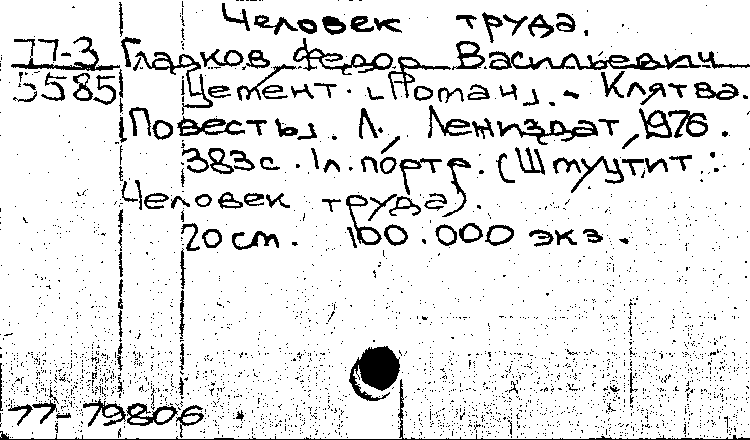 Человек труда.
77-3 Гладков Федор Васильевич
5585 Цемент. [Роман]. - Клятва.
[Повесть]. Л., Лениздат, 1976.
383 с. 1 л. портр. (Ш туутит:
Человек труда).
20 см. 100.000 экз.
77-79806